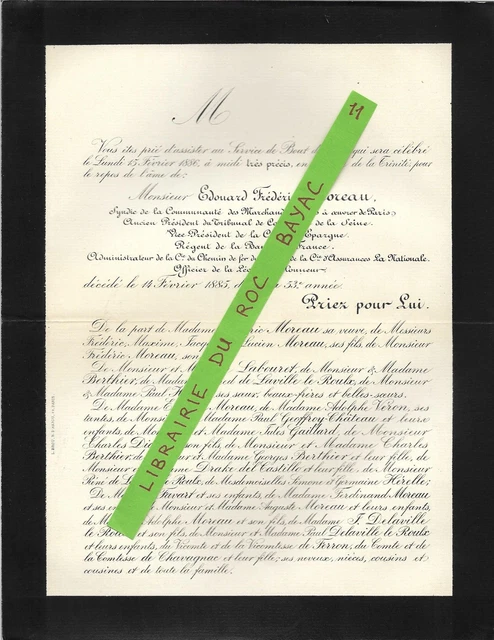 M
Vous êtes prié d'assister au Service de Bout de qui sera célébré
le Lundi 15 Février 1886, à midi très précis, en de la Trinité, pour
le repos de l'âme de:
Monsieur Edouard Frédéric Moreau,
Syndic de la Communauté des Marchands à œuvrer de Paris,
Ancien Président du Tribunal de Co de la Seine.
Vice Président de la C Epargne.
Régent de la Ban France.
Administrateur de la Cie du Chemin de fer de la Cie d'Assurances La Nationale.
Officier de la Légion onneur
décédé le 14 Février 1885, d 53e année.
Priez pour Lui.
De la part de Madame ric Moreau sa veuve, de Messieurs
Frédéric, Maxime, Jacq Lucien Moreau, ses fils, de Monsieur
Frédéric Moreau, son
De Monsieur et M Labouret, de Monsieur & Madame
Berthier, de Mada ed de Laville le Roulx, de Monsieur
& Madame Paul H ses sœurs, beaux-frères et belles-sœurs.
De Madame Moreau, de Madame Adolphe Véron, ses
tantes, de Mons Madame Paul Geoffroy-Château et leurs
enfants, de Mon Madame Jules Gaillard, de Monsieur
Charles Di son fils, de Monsieur et Madame Charles
Berthier, de ur et Madame Georges Berthier et leur fille, de
Monsieur e dame Drake del Castillo et leur fille, de Monsieur
René de L Roulx, de Mesdemoiselles Simone et Germaine Hérelle;
De M Favart et ses enfants, de Madame Ferdinand Moreau
et ses en Monsieur et Madame Auguste Moreau et leurs enfants,
de M Adolphe Moreau et son fils, de Madame J. Delaville
le Roul et son fils, de Monsieur et Madame Paul Delaville le Roulx
et leurs enfants, du Vicomte et de la Vicomtesse de Ferron, du Comte et de
la Comtesse de Chavagnac et leur fille; ses neveux, nièces, cousins et
cousines et de toute la famille.
11
LIBRAIRIE DU ROC BAYAC